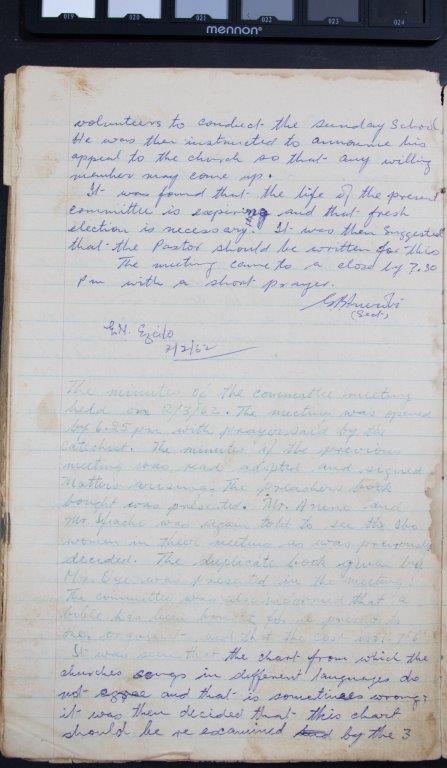 019 020 021 022 023 024
mennon
volunteers to conduct the Sunday School
He was then instructed to announce his
appeal to the church so that any willing
member may come up.
It was found that the life of the present
committee is expiring and that fresh
election is necessary. It was then suggested
that the Pastor should be written for this
The meeting came to a close by 7.30
pm with a short prayer.
(Sect)
2/2/62
The minutes of the committee meeting
held on 2/3/62. The meeting was opened
by 6.25 pm with prayer said by the
catechist. The minutes of the previous
meeting was read adopted and signed
Matters arising: The preachers book
bought was presented. Mr. Anene and
Mr. was again told to see the Ibo
women in their meeting as was previously
decided. The duplicate book given by
Mr. Oye was presented in the meeting.
The committee was also informed that a
bible has been
our organist and that the cost is
It was seen that the chart from which the
churches songs in different languages do
not agree and that is sometimes wrong;
it was then decided that this chart
should be re examined by the 3